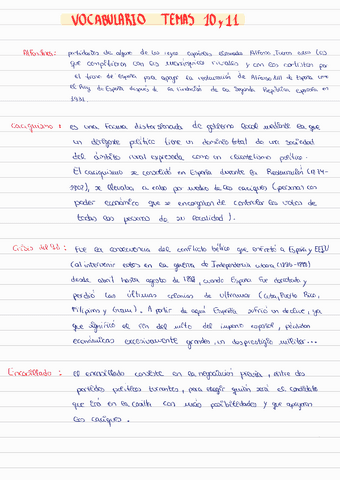 VOCABULARIO TEMAS 10 y 11
Alfonsinos: partidarios de alguno de los reyes españoles llamados Alfonso, fueron estos los
que compitieron con los monárquicos rivales y con los carlistas por
el trono de España para apoyar la restauración de Alfonso XIII de España como
el Rey de España después de la fundación de la Segunda República española en
1931.
caciquismo: es una forma distorsionada de gobierno local mediante la que
un dirigente político tiene un dominio total de una sociedad
del ámbito rural expresada como un clientelismo político.
El caciquismo se consolidó en España durante la Restauración (1874-
), se llevaba a cabo por medio de los caciques (personas con
poder económico que se encargaban de controlar los votos de
todas las personas de su localidad).
Crisis del 98: fue la consecuencia del conflicto bélico que enfrentó a España y EEUU
(al intervenir estos en la guerra de Independencia cubana (1895-1898)
desde abril hasta agosto de 1898, cuando España fue derrotada y
perdió las últimas colonias de ultramar (Cuba, Puerto Rico,
Filipinas y Guam). A partir de aquí España sufrió un declive, ya
que significó el fin del mito del imperio español, pérdidas
económicas excesivamente grandes, un desprestigio militar...
Encasillado: el encasillado consiste en la negociación previa, entre dos
partidos políticos turnantes, para elegir quién será el candidato
que irá en la casilla con más posibilidades y que apoyaran
los caciques.